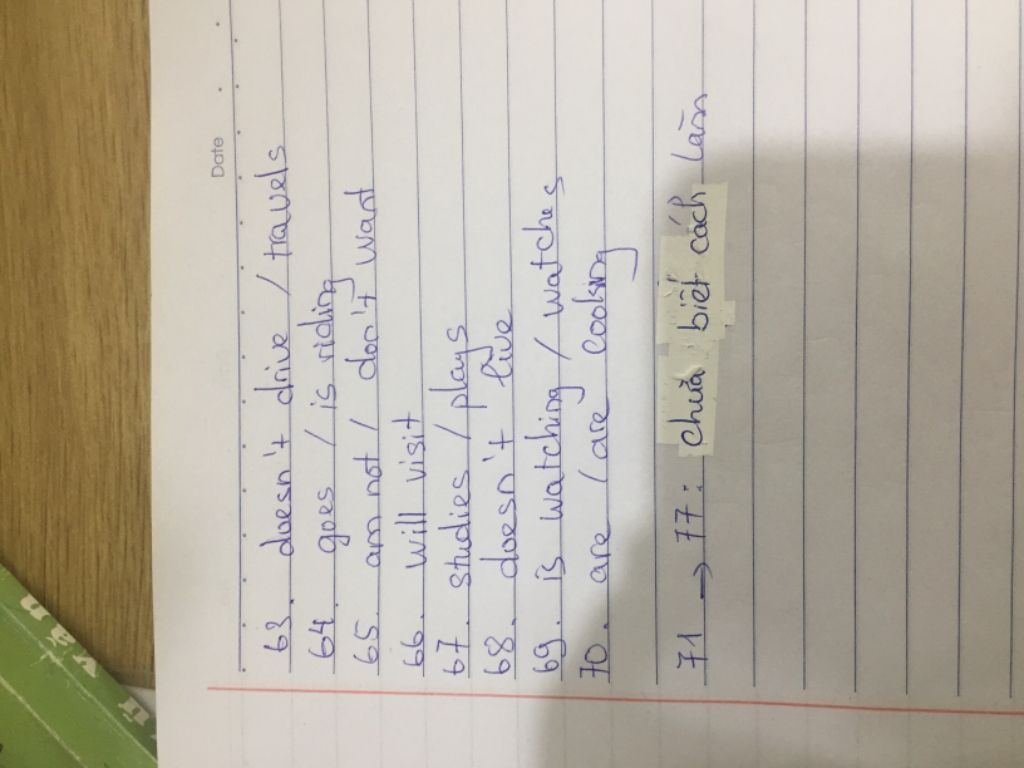 Date
63. doesn't drive / travels
64. goes / is riding
65. am not / don't want
66. will visit
67. studies / plays
68. doesn't live
69. is watching / watches
70. are / are cooking
71 → 77: chưa biết cách làm
văn